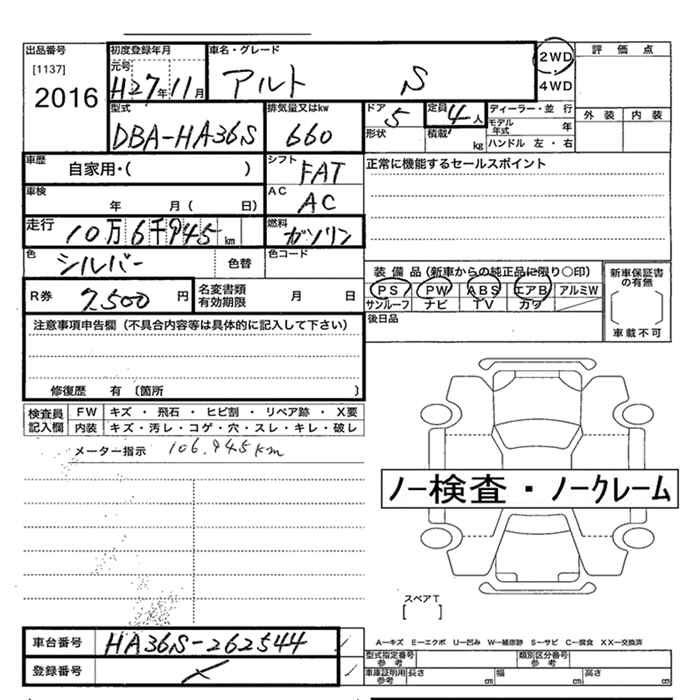 出品番号 初度登録年月 車名・グレード 2WD 評価点
[1137] 元号 H27年11月 アルト S 4WD
2016 外装 内装
型式 排気量又はkw ドア 定員 ディーラー・並行
DBA-HA36S 660 5 4人 モデル年式 年
形状 積載 kg ハンドル 左・右
車歴 自家用・( ) シフト FAT 正常に機能するセールスポイント
車検 年 月 ( 日) AC AC
走行 10万6千945km 燃料 ガソリン
色 シルバー 色替 色コード
装備品(新車からの純正品に限り○印) 新車保証書の有無
R券 7,500円 名変書類有効期限 月 日 PS PW ABS エアB アルミW
サンルーフ ナビ TV カワ
後日品 車載不可
注意事項申告欄(不具合内容等は具体的に記入して下さい)
修復歴 有 〔箇所 〕
検査員記入欄 FW キズ・飛石・ヒビ割・リペア跡・X要
内装 キズ・汚レ・コゲ・穴・スレ・キレ・破レ
メーター指示 106,945km
ノー検査・ノークレーム
スペアT
[ ]
車台番号 HA36S-262544
A-キズ E-エクボ U-凹み W-補修跡 S-サビ C-腐食 XX-交換済
登録番号 ×
型式指定番号 参考 類別区分番号 参考
車庫証明用 参考 長さ cm 幅 cm 高さ cm